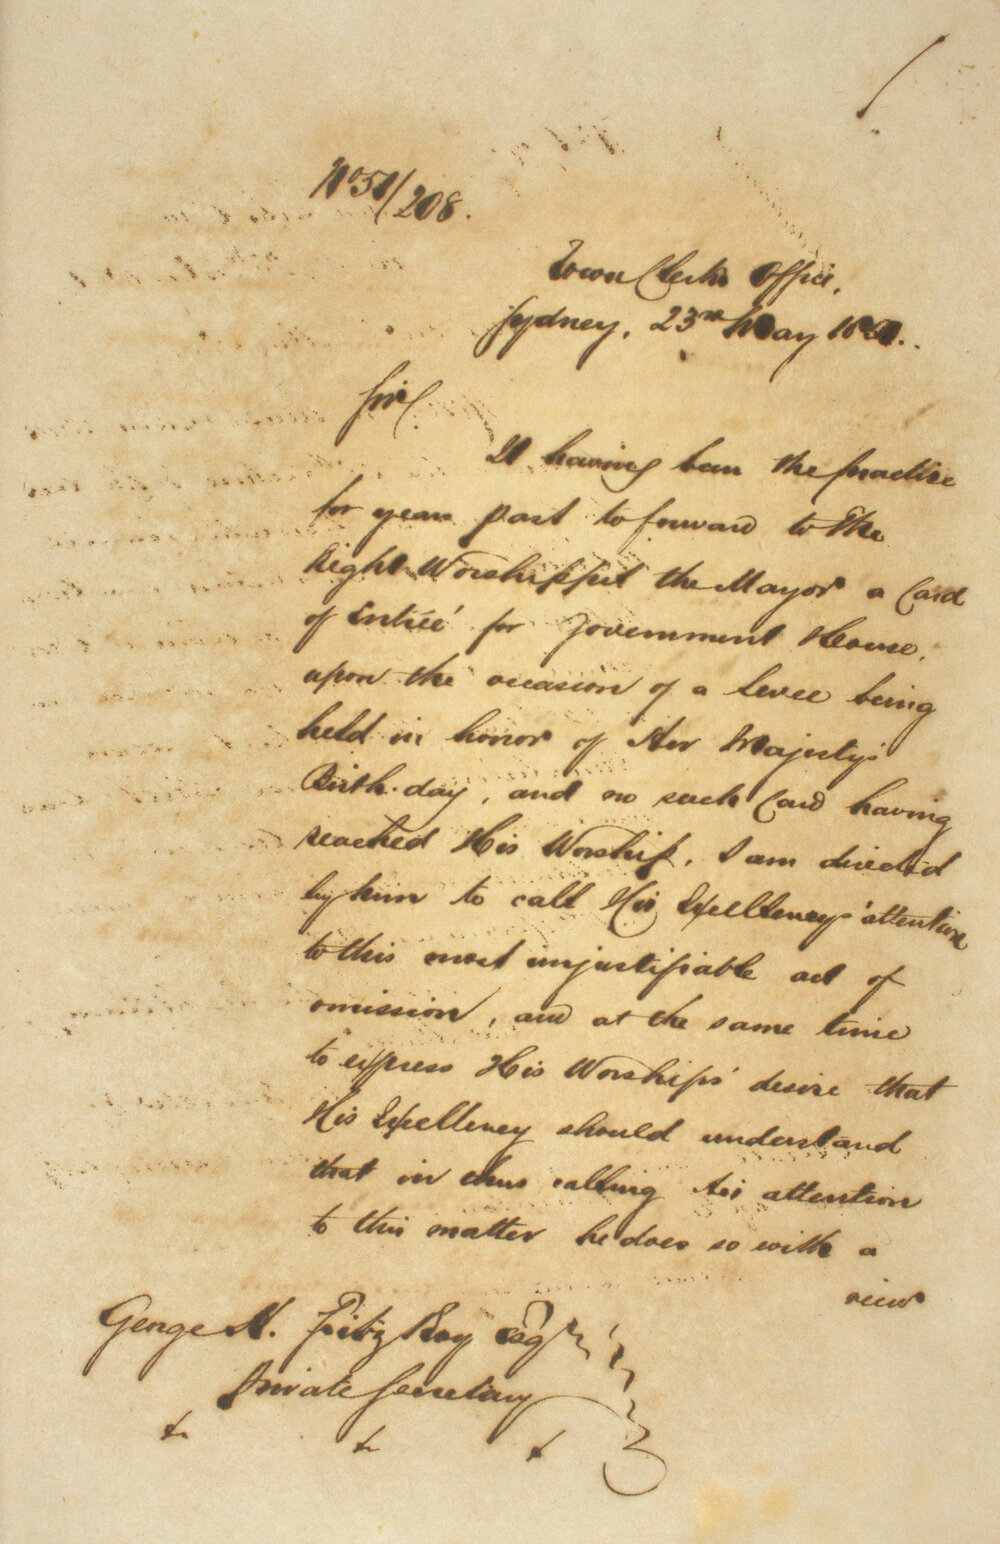 No 51/208.
Town Clerk's Office,
Sydney, 23rd May 1851.
Sir,
It having been the practice
for years past to forward to The
Right Worshipful the Mayor a Card
of Entrée for Government House,
upon the occasion of a Levee being
held in honor of Her Majesty's
Birth-day, and no such Card having
reached His Worship, I am directed
by him to call His Excellency's attention
to this most unjustifiable act of
omission, and at the same time
to express His Worships' desire that
His Excellency should understand
that in thus calling his attention
to this matter he does so with a
view
George H. Fitz Roy Esqr
Private Secretary
&c &c &c